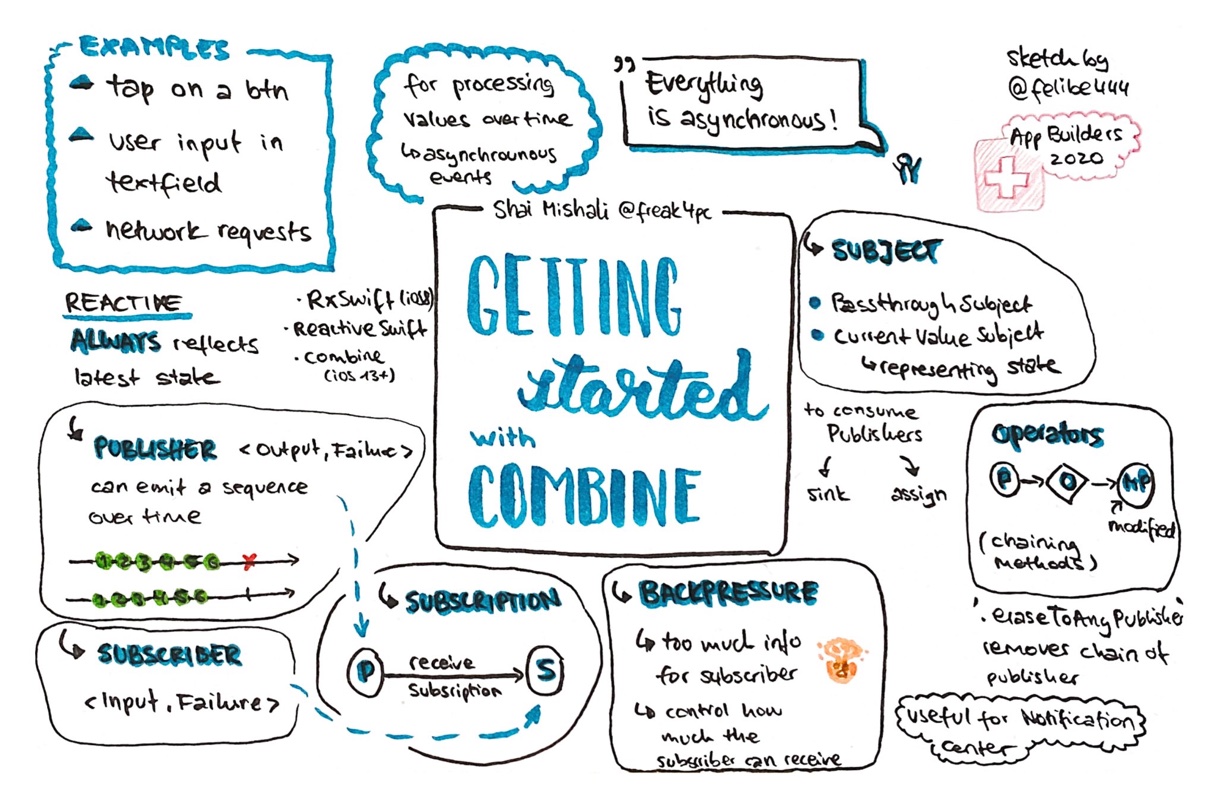 EXAMPLES
tap on a btn
user input in
textfield
network requests
for processing
values over time
↳ asynchrounous
events
" Everything
is asynchronous!
sketch by
@felibe444
App Builders
2020
Shai Mishali @freak4pc
GETTING
started
with
COMBINE
REACTIVE
ALWAYS reflects
latest state
· RxSwift (iOS8)
· ReactiveSwift
· combine
(iOS 13+)
↳ SUBJECT
• Passthrough Subject
• Current Value Subject
↳ representing state
to consume
Publishers
sink
assign
operators
P → O → MP
modified
(chaining
methods)
'.eraseToAnyPublisher'
removes chain of
publisher
useful for Notification
center
↳ PUBLISHER <Output, Failure>
can emit a sequence
over time
1 2 3 4 5 6 x
1 2 3 4 5 6 |
↳ SUBSCRIBER
<Input, Failure>
↳ SUBSCRIPTION
P
receive
Subscription
S
↳ BACKPRESSURE
↳ too much info
for subscriber
↳ control how
much the
subscriber can receive